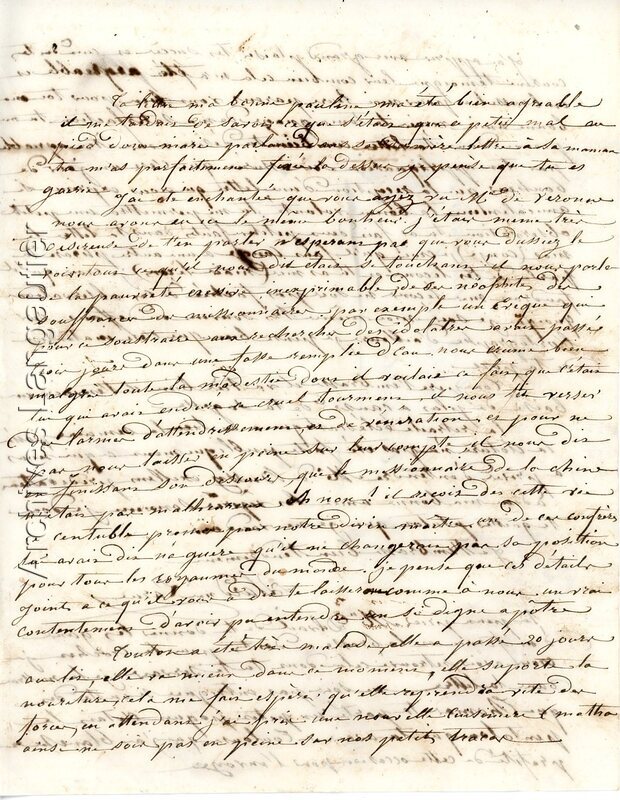 ta lettre ma bonne pauline m'a été bien agreable
il me tardait de savoir ce que s'était que ce petit mal au
pied dont marie parlait dans sa dernière lettre à sa maman
tu m'as parfaitement fixée la dessus, je pense que tu es
guerie j'ai été enchantée que vous ayez vu Mr de verone
nous avons eu ici le même bonheur, j'étais meme très
desireuse de t'en parler n'esperant pas que vous dussiez le
voir tout ce qu'il nous dit était si touchant il nous parla
de la pauvreté inexprimable de ses neophites, des
souffrances des missionnaires, par exemple un evêque qui
pour se soustraire aux recherches des idolatres avait passés
jours dans une fosse remplie d'eau, nous crumes bien
malgré toute la modestie dont il voilait ce fait, que c'était
lui qui avait enduré ce cruel tourment il nous fit verser
des larmes d'attendrissement, et de veneration, et pour ne
pas nous laisser en peine sur leur compte il nous dit
en finissant son discours, que le missionnaire de la chine
n'était pas malheureux oh non ! il reçoit des cette vie
le centuple promis par notre divin maitre, un de ces confrères
lui avait dit na guere qu'il ne changerait pas sa position
pour tous les royaumes du monde, je pense que ces détails
joint a ce qu'il vous a dit te laissera comme à nous un vrai
contentement d'avoir pu entendre un si digne apôtre
Touton a été très malade, elle a passé 20 jours
au lit, elle va mieux dans ce moment, elle suporte la
nouriture, cela me fait espérer qu'elle reprendra vite des
forces, en attendant j'ai pris une nouvelle cuisinière
ainsi ne sois pas en peine sur nos petits tracas
Archives Langautier